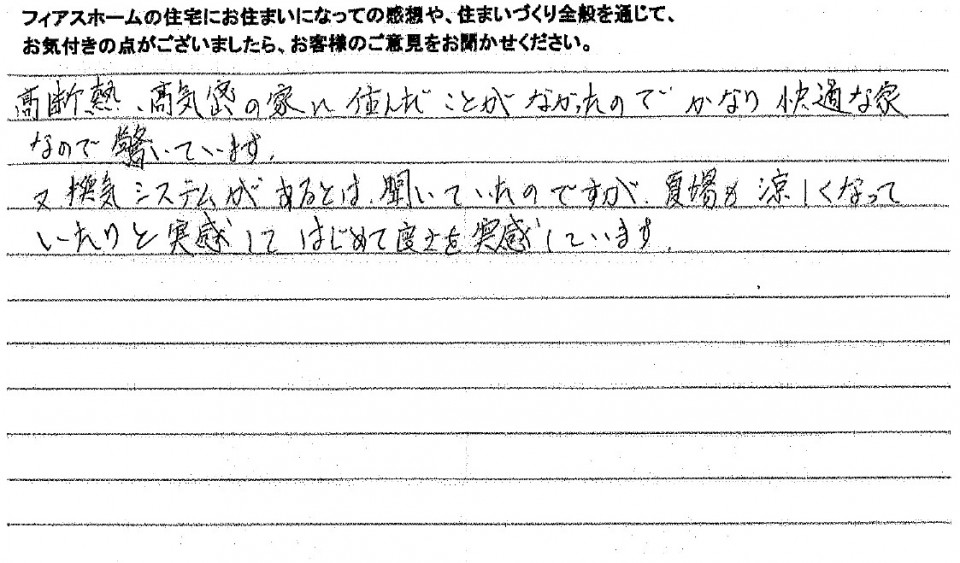 フィアスホームの住宅にお住まいになっての感想や、住まいづくり全般を通じて、
お気付きの点がございましたら、お客様のご意見をお聞かせください。
高断熱、高気密の家に住んだことがなかったのでかなり快適な家
なので驚いています。
又換気システムがあるとは、聞いていたのですが、夏場も涼しくなって
いたりと実感して はじめて良さを実感しています。